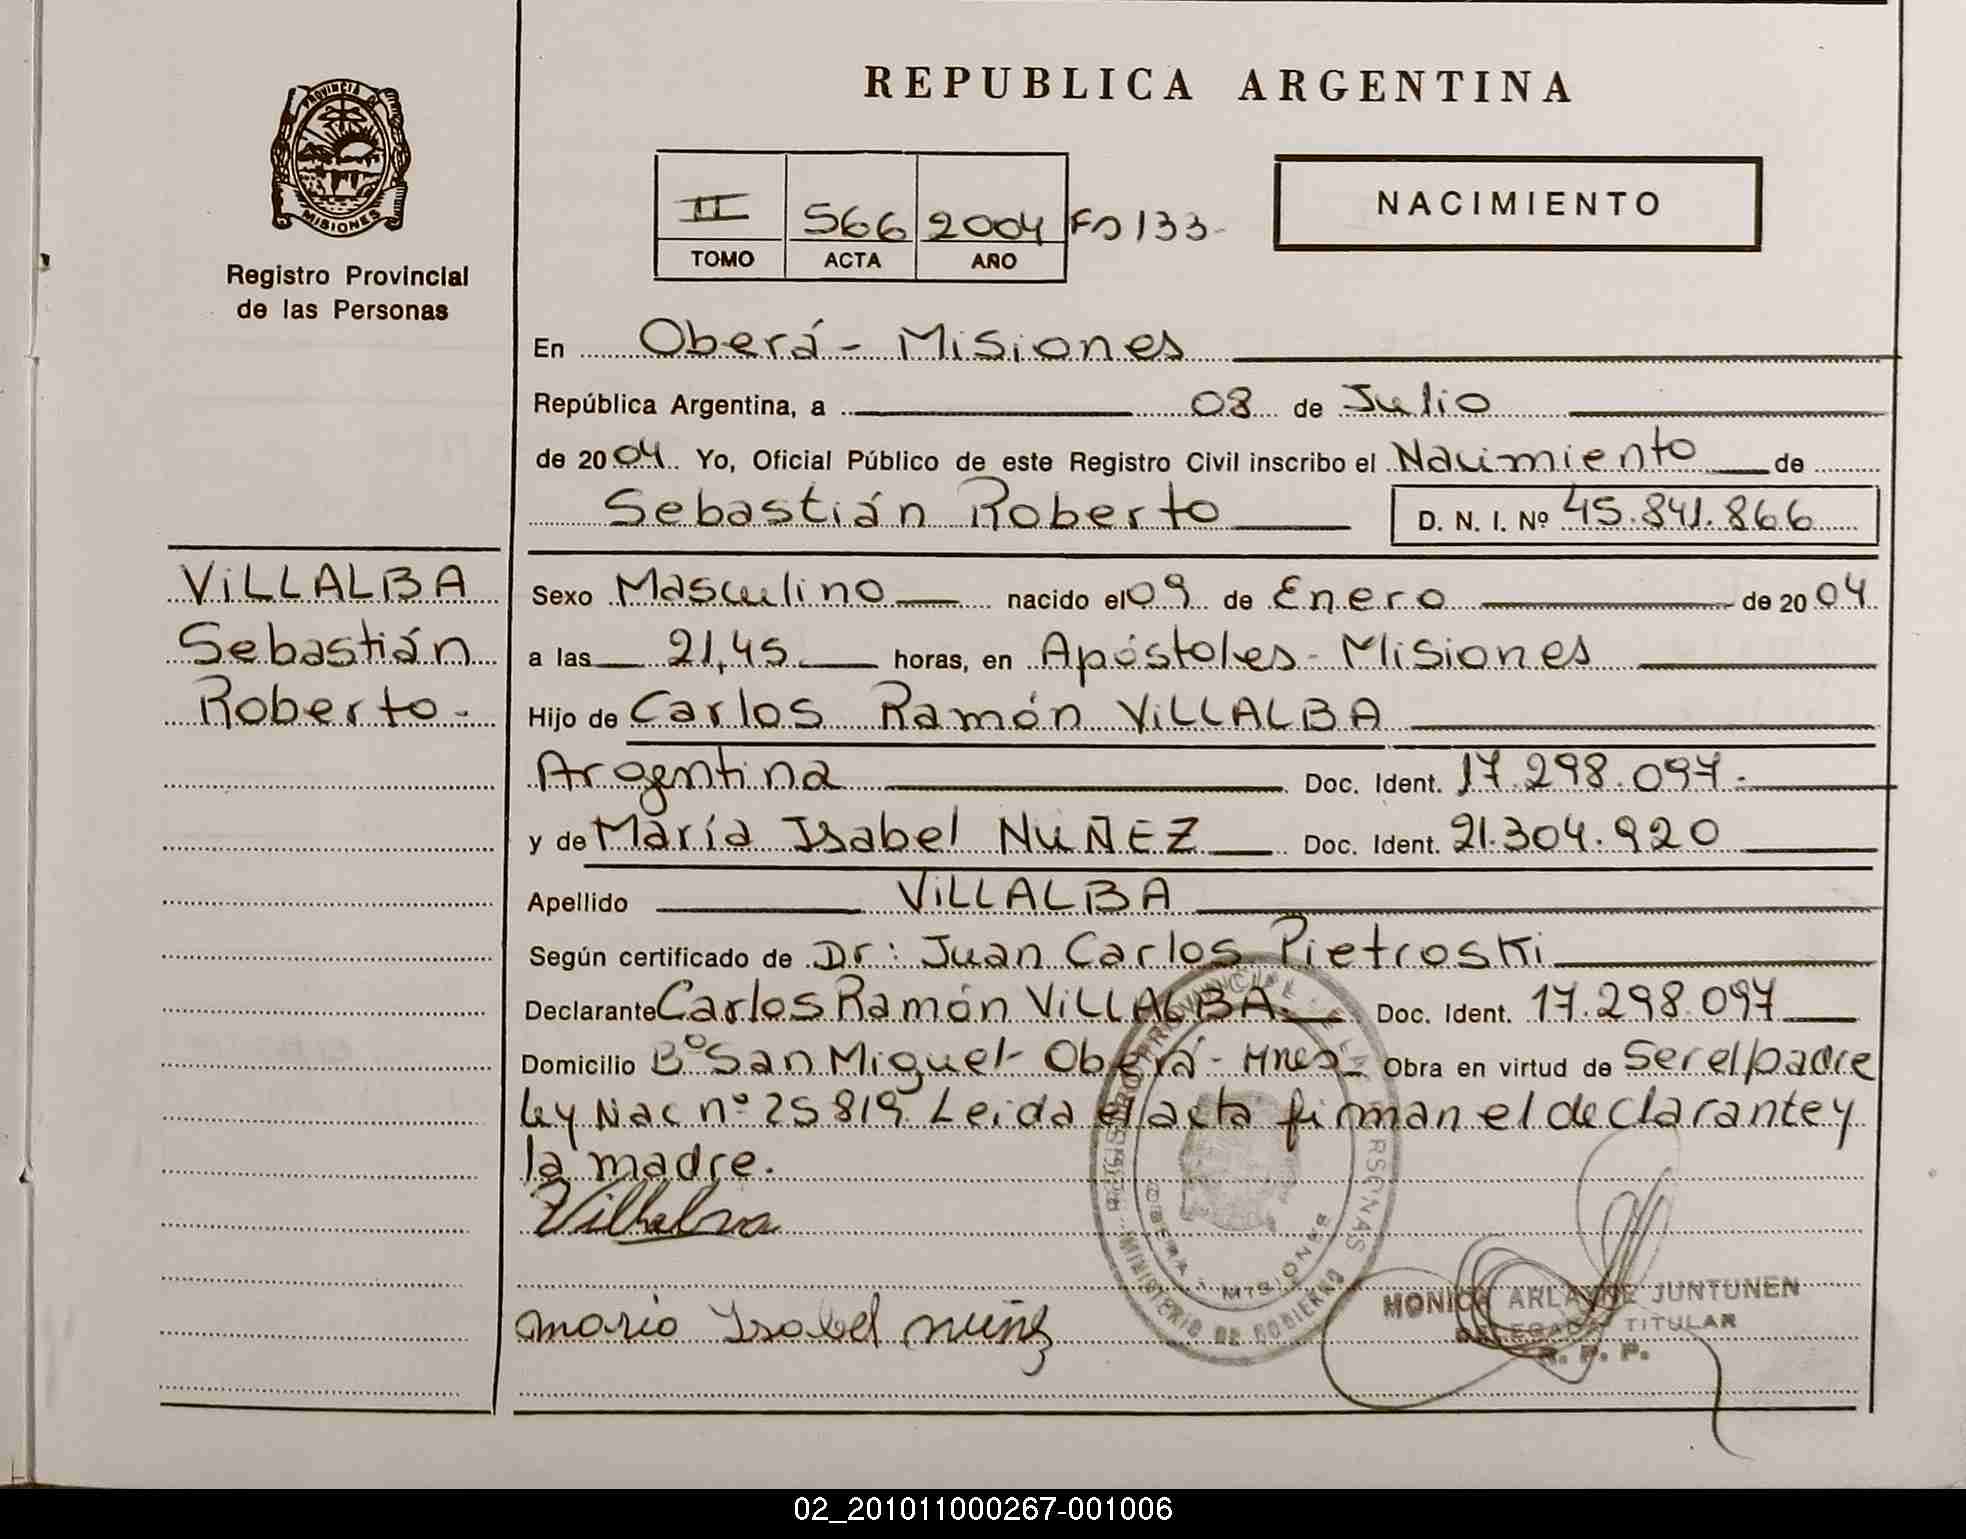 REPUBLICA ARGENTINA
PROVINCIA DE
MISIONES
Registro Provincial
de las Personas
II 566 2004 Fº 133-
TOMO ACTA AÑO
NACIMIENTO
En Oberá - Misiones
República Argentina, a 08 de Julio
de 2004. Yo, Oficial Público de este Registro Civil inscribo el Nacimiento de
Sebastián Roberto D. N. I. Nº 45.841.866
VILLALBA
Sebastián
Roberto.-
Sexo Masculino nacido el 09 de Enero de 2004
a las 21,45 horas, en Apóstoles - Misiones
Hijo de Carlos Ramón VILLALBA
Argentina Doc. Ident. 17.298.097.-
y de María Isabel NUÑEZ Doc. Ident. 21.304.920
Apellido VILLALBA
Según certificado de Dr: Juan Carlos Pietroski
Declarante Carlos Ramón VILLALBA Doc. Ident. 17.298.097
Domicilio Bº San Miguel - Oberá - Mnes Obra en virtud de Ser el padre
Ley Nac nº 25819. Leida el acta firman el declarante y
la madre.
Villalba
maria Ysabel nuñez
MINISTERIO DE GOBIERNO
OBERA - MISIONES
MONICA ARLAYNE JUNTUNEN
DELEGADA TITULAR
R. P. P.
02_201011000267-001006